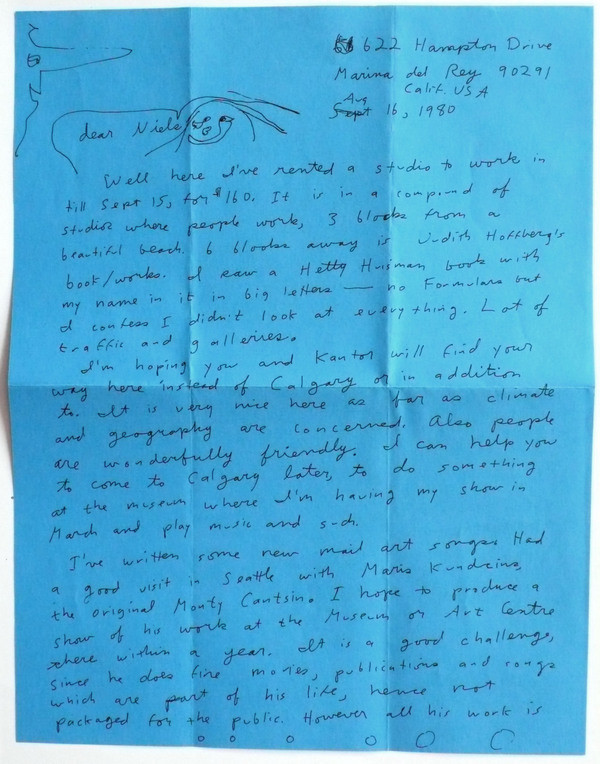 622 Hampton Drive
Marina del Rey 90291
Calif. USA
Aug
Sept 16, 1980
dear Niele
Well here I've rented a studio to work in
till Sept 15, for $160. It is in a compound of
studios where people work, 3 blocks from a
beautiful beach. 6 blocks away is Judish Hoffberg's
book/works. I saw a Hetty Huisman book with
my name in it in big letters — no Formulars but
I confess I didn't look at everything. Lot of
traffic and galleries.
I'm hoping you and Kantor will find your
way here instead of Calgary or in addition
to. It is very nice here as far as climate
and geography are concerned. Also people
are wonderfully friendly. I can help you
to come to Calgary later, to do something
at the museum where I'm having my show in
March and play music and such.
I've written some new mail art songs. Had
a good visit in Seattle with Maris Kundzins,
the original Monty Cantsin. I hope to produce a
show of his work at the Museum or Art Centre
there within a year. It is a good challenge,
since he does fine movies, publications and songs
which are part of his life, hence not
packaged for the public. However all his work is